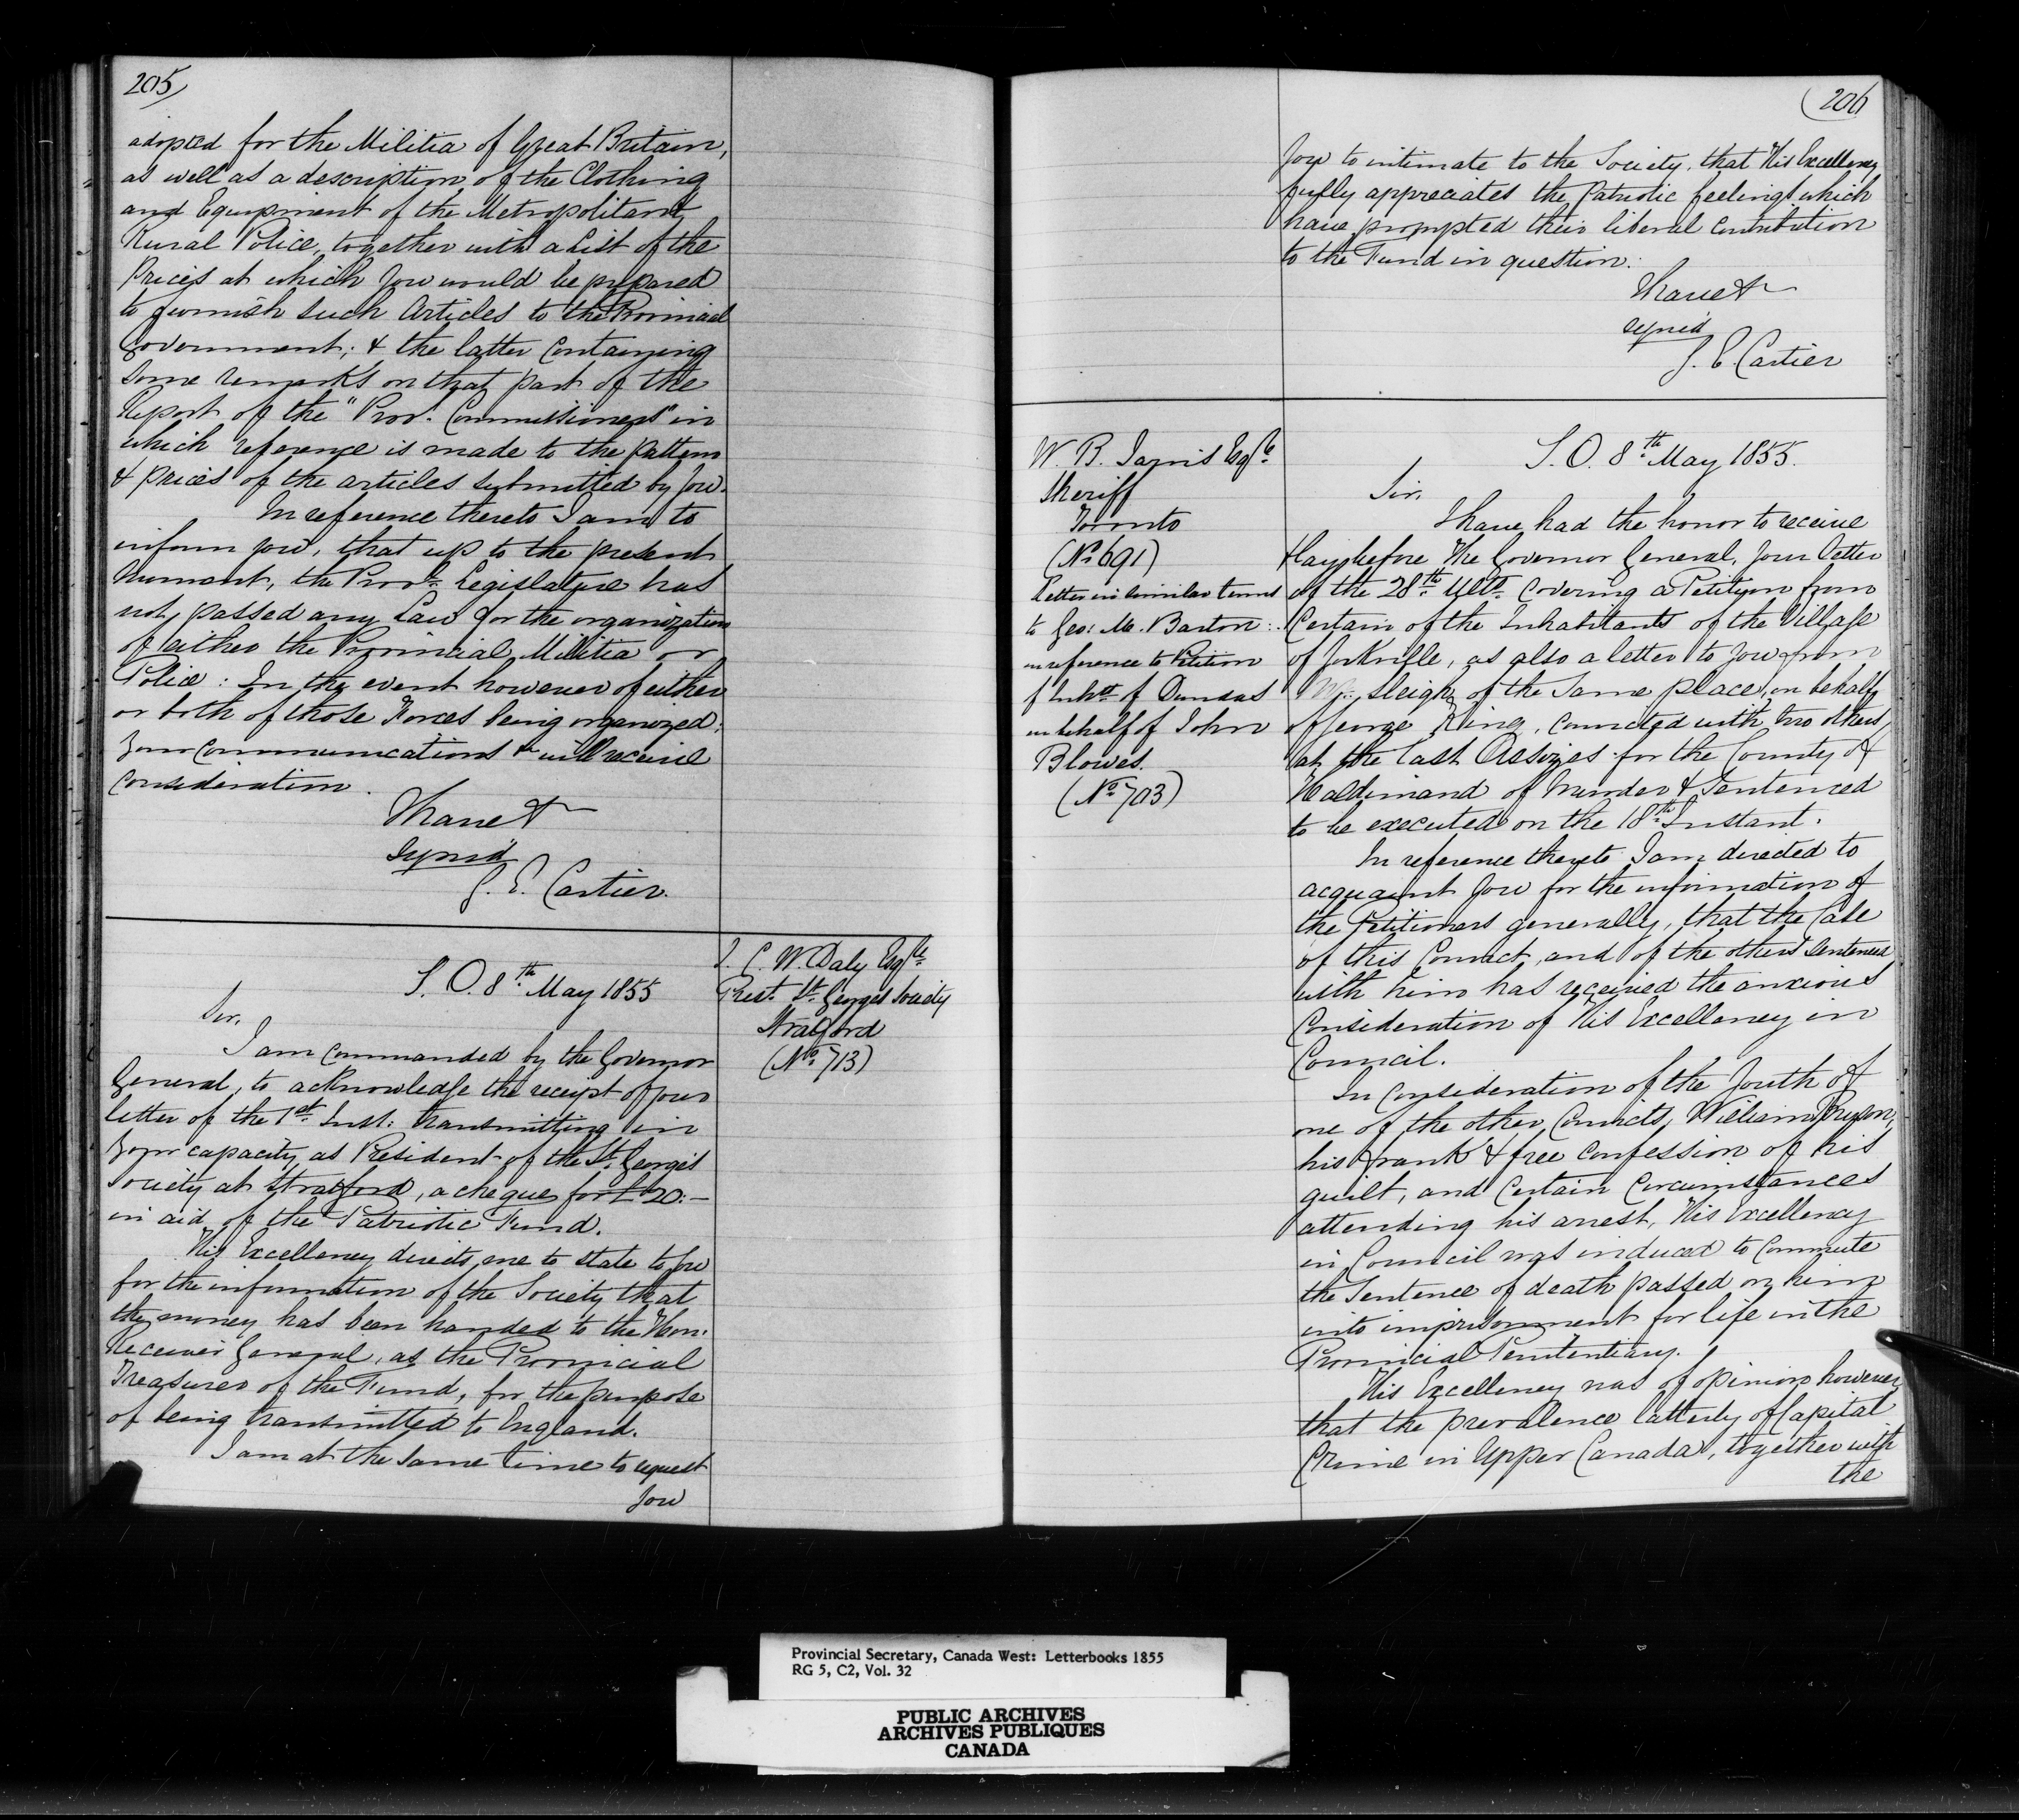 205
adopted for the Militia of Great Britain,
as well as a description of the Clothing
and Equipment of the Metropolitan &
Rural Police, together with a List of the
Prices at which you would be prepared
to furnish such Articles to the Provincial
Government; & the latter containing
some remarks on that part of the
Report of the "Prov: Commissioners" in
which reference is made to the pattern
& prices of the articles submitted by you.
In reference thereto I am to
inform you, that up to the present
moment, the Provl. Legislature has
not passed any Law for the organization
of either the Provincial Militia or
Police: In the event however of either
or both of those Forces being organized,
your communications will receive
consideration.
I have &
signed
G. E. Cartier.
J. C. W. Daly Esqre.
Prest. St. George's Society
Stratford
(No. 713)
S. O. 8th. May 1855
Sir,
I am commanded by the Governor
General, to acknowledge the receipt of your
letter of the 1st. Inst: transmitting in
your capacity as President of the St. George's
Society at Stratford, a cheque for £20.–
in aid of the Patriotic Fund.
His Excellency directs me to state to you
for the information of the Society that
the money has been handed to the Hon.
Receiver General, as the Provincial
Treasurer of the Fund, for the purpose
of being transmitted to England.
I am at the same time to request
you
206
you to intimate to the Society, that His Excellency
fully appreciates the Patriotic feelings which
have prompted their liberal contribution
to the Fund in question.
I have &
signed
G. E. Cartier
W. B. Jarvis Esqre.
Sheriff
Toronto
(No 691)
Letter in similar terms
to Geo: M. Barton:
in reference to Petition
of Inhts of Dundas
on behalf of John
Blowes.
(No. 703)
S. O. 8th. May 1855.
Sir,
I have had the honor to receive
& lay before The Governor General, your letter
of the 28th. Ulto. covering a Petition from
Certain of the Inhabitants of the Village
of Yorkville, as also a letter to you from
Mr. Sleigh of the same place, on behalf
of George King, convicted with two others,
at the last Assizes for the County of
Haldimand of Murder & Sentenced
to be executed on the 18th. Instant.
In reference thereto I am directed to
acquaint you for the information of
the Petitioners generally, that the Case
of this Convict, and of the others Sentenced
with him has received the anxious
Consideration of His Excellency in
Council.
In Consideration of the Youth of
one of the other Convicts, William Bryson,
his frank & free confession of his
guilt, and certain circumstances
attending his arrest, His Excellency
in Council was induced to Commute
the Sentence of death passed on him
into imprisonment for life in the
Provincial Penitentiary.
His Excellency was of opinion however,
that the prevalence latterly of Capital
Crime in Upper Canada, together with
the
Provincial Secretary, Canada West: Letterbooks 1855
RG 5, C2, Vol. 32
PUBLIC ARCHIVES
ARCHIVES PUBLIQUES
CANADA